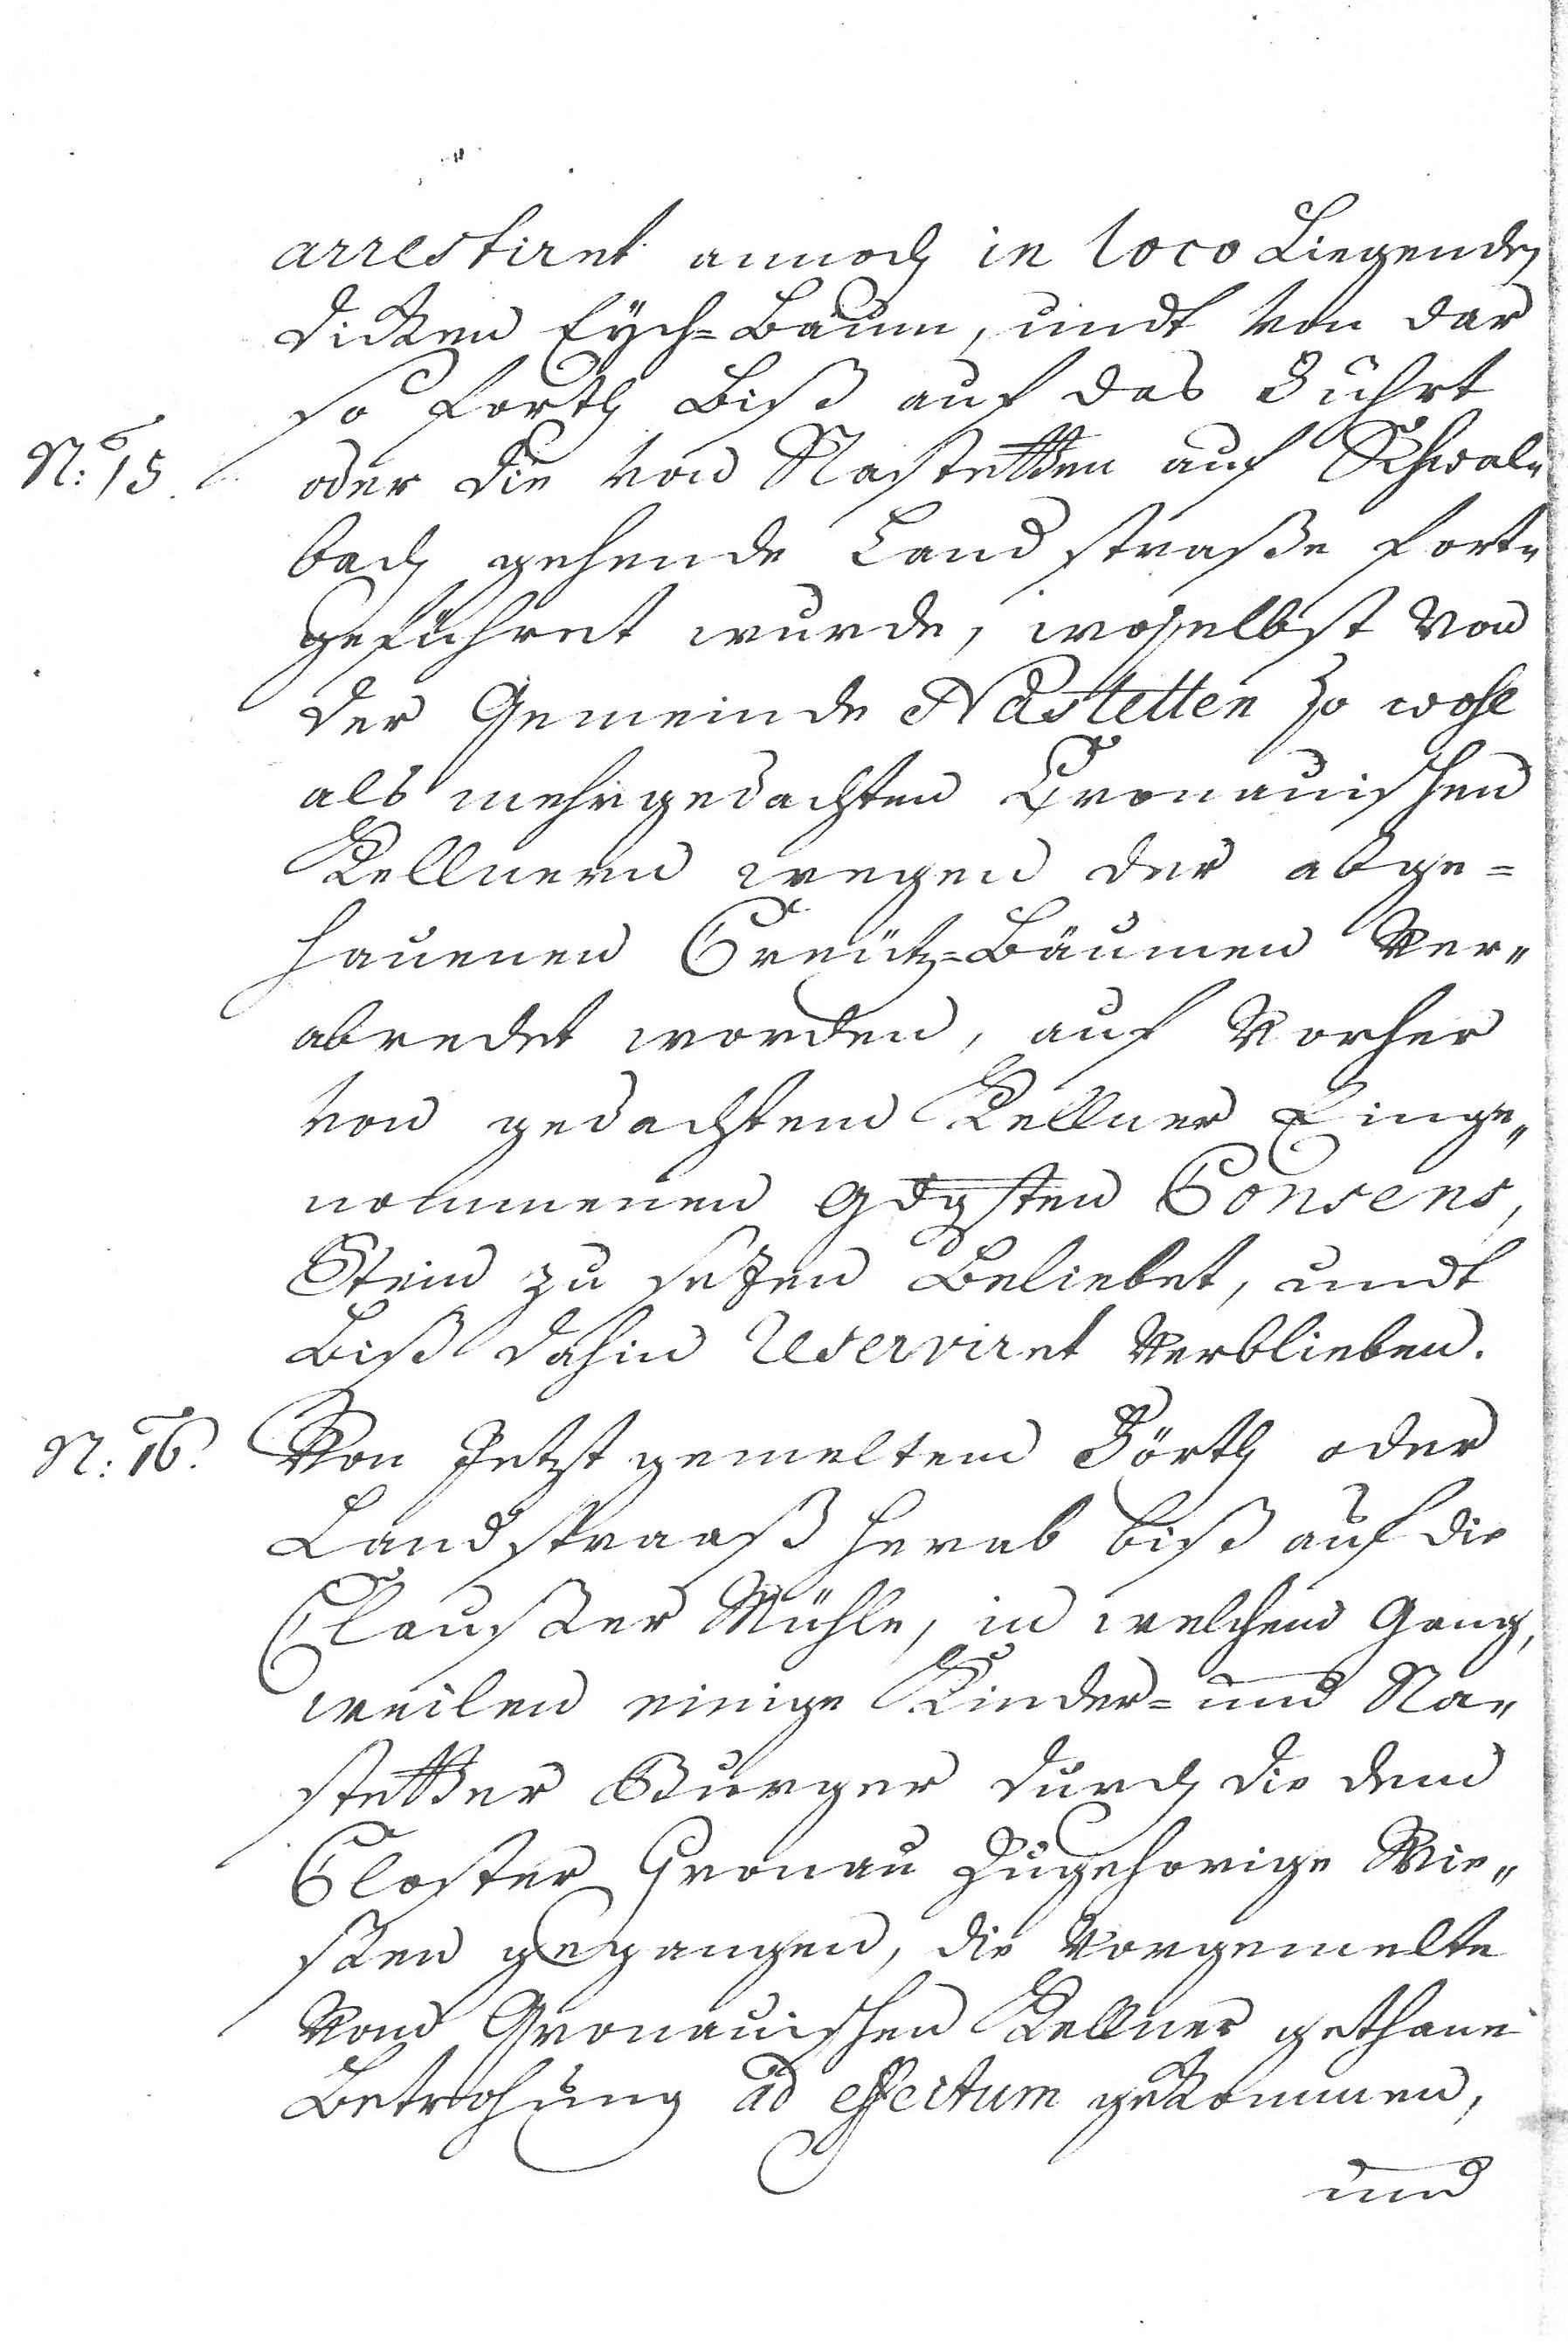 arrestiret annoch in loco Liegenden
dicken Eÿch=Baum, undt von dar
so forth Biß auf das Führt
N.º 15. oder die von Nastetten auf Schwal„
bach gehende Landstraße fort„
geführet wurde, woselbst von
der Gemeinde Nastetten so wohl
als mehrgedachten Gronauischen
Kellnern wegen der abge=
hauenen Creütz=Bäumen Ver„
abredet worden, auf Vorher
von gedachtem Kellner Einge„
nommenen gdgsten Consens,
Stein zu sezen Beliebet, undt
Biß dahin Reserviret Verblieben.
N.º 16. Von Jetzt gemeltem Förth oder
Landstraaß herab biß auf die
Clauster Mühle, in welchem Gang,
weilen einige Kinder= und Na„
stetter Burger durch die dem
Closter Gronau Zugehorige Wie„
ßen gegangen, die Vorgemelte
Vom Gronauischen Kellner gethane
Betrohung ad effectum gekommen,
und